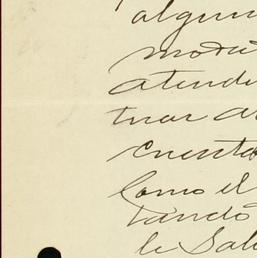 algun
moda
atende
tuar a
cuenta
Como el
tando
le Sal